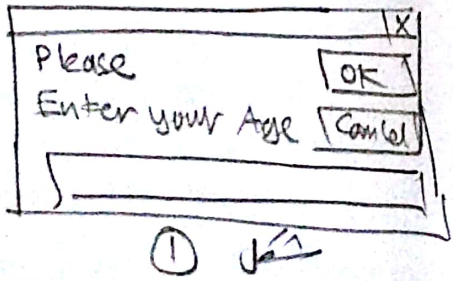 X
Please
OK
Enter your Age
Cancel
شكل ①